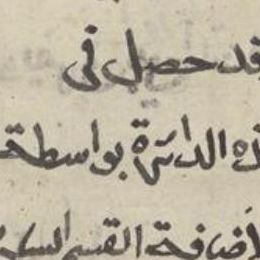 قد حصل فى
ذه الدائرة بواسطة
لاضافة القسم السا